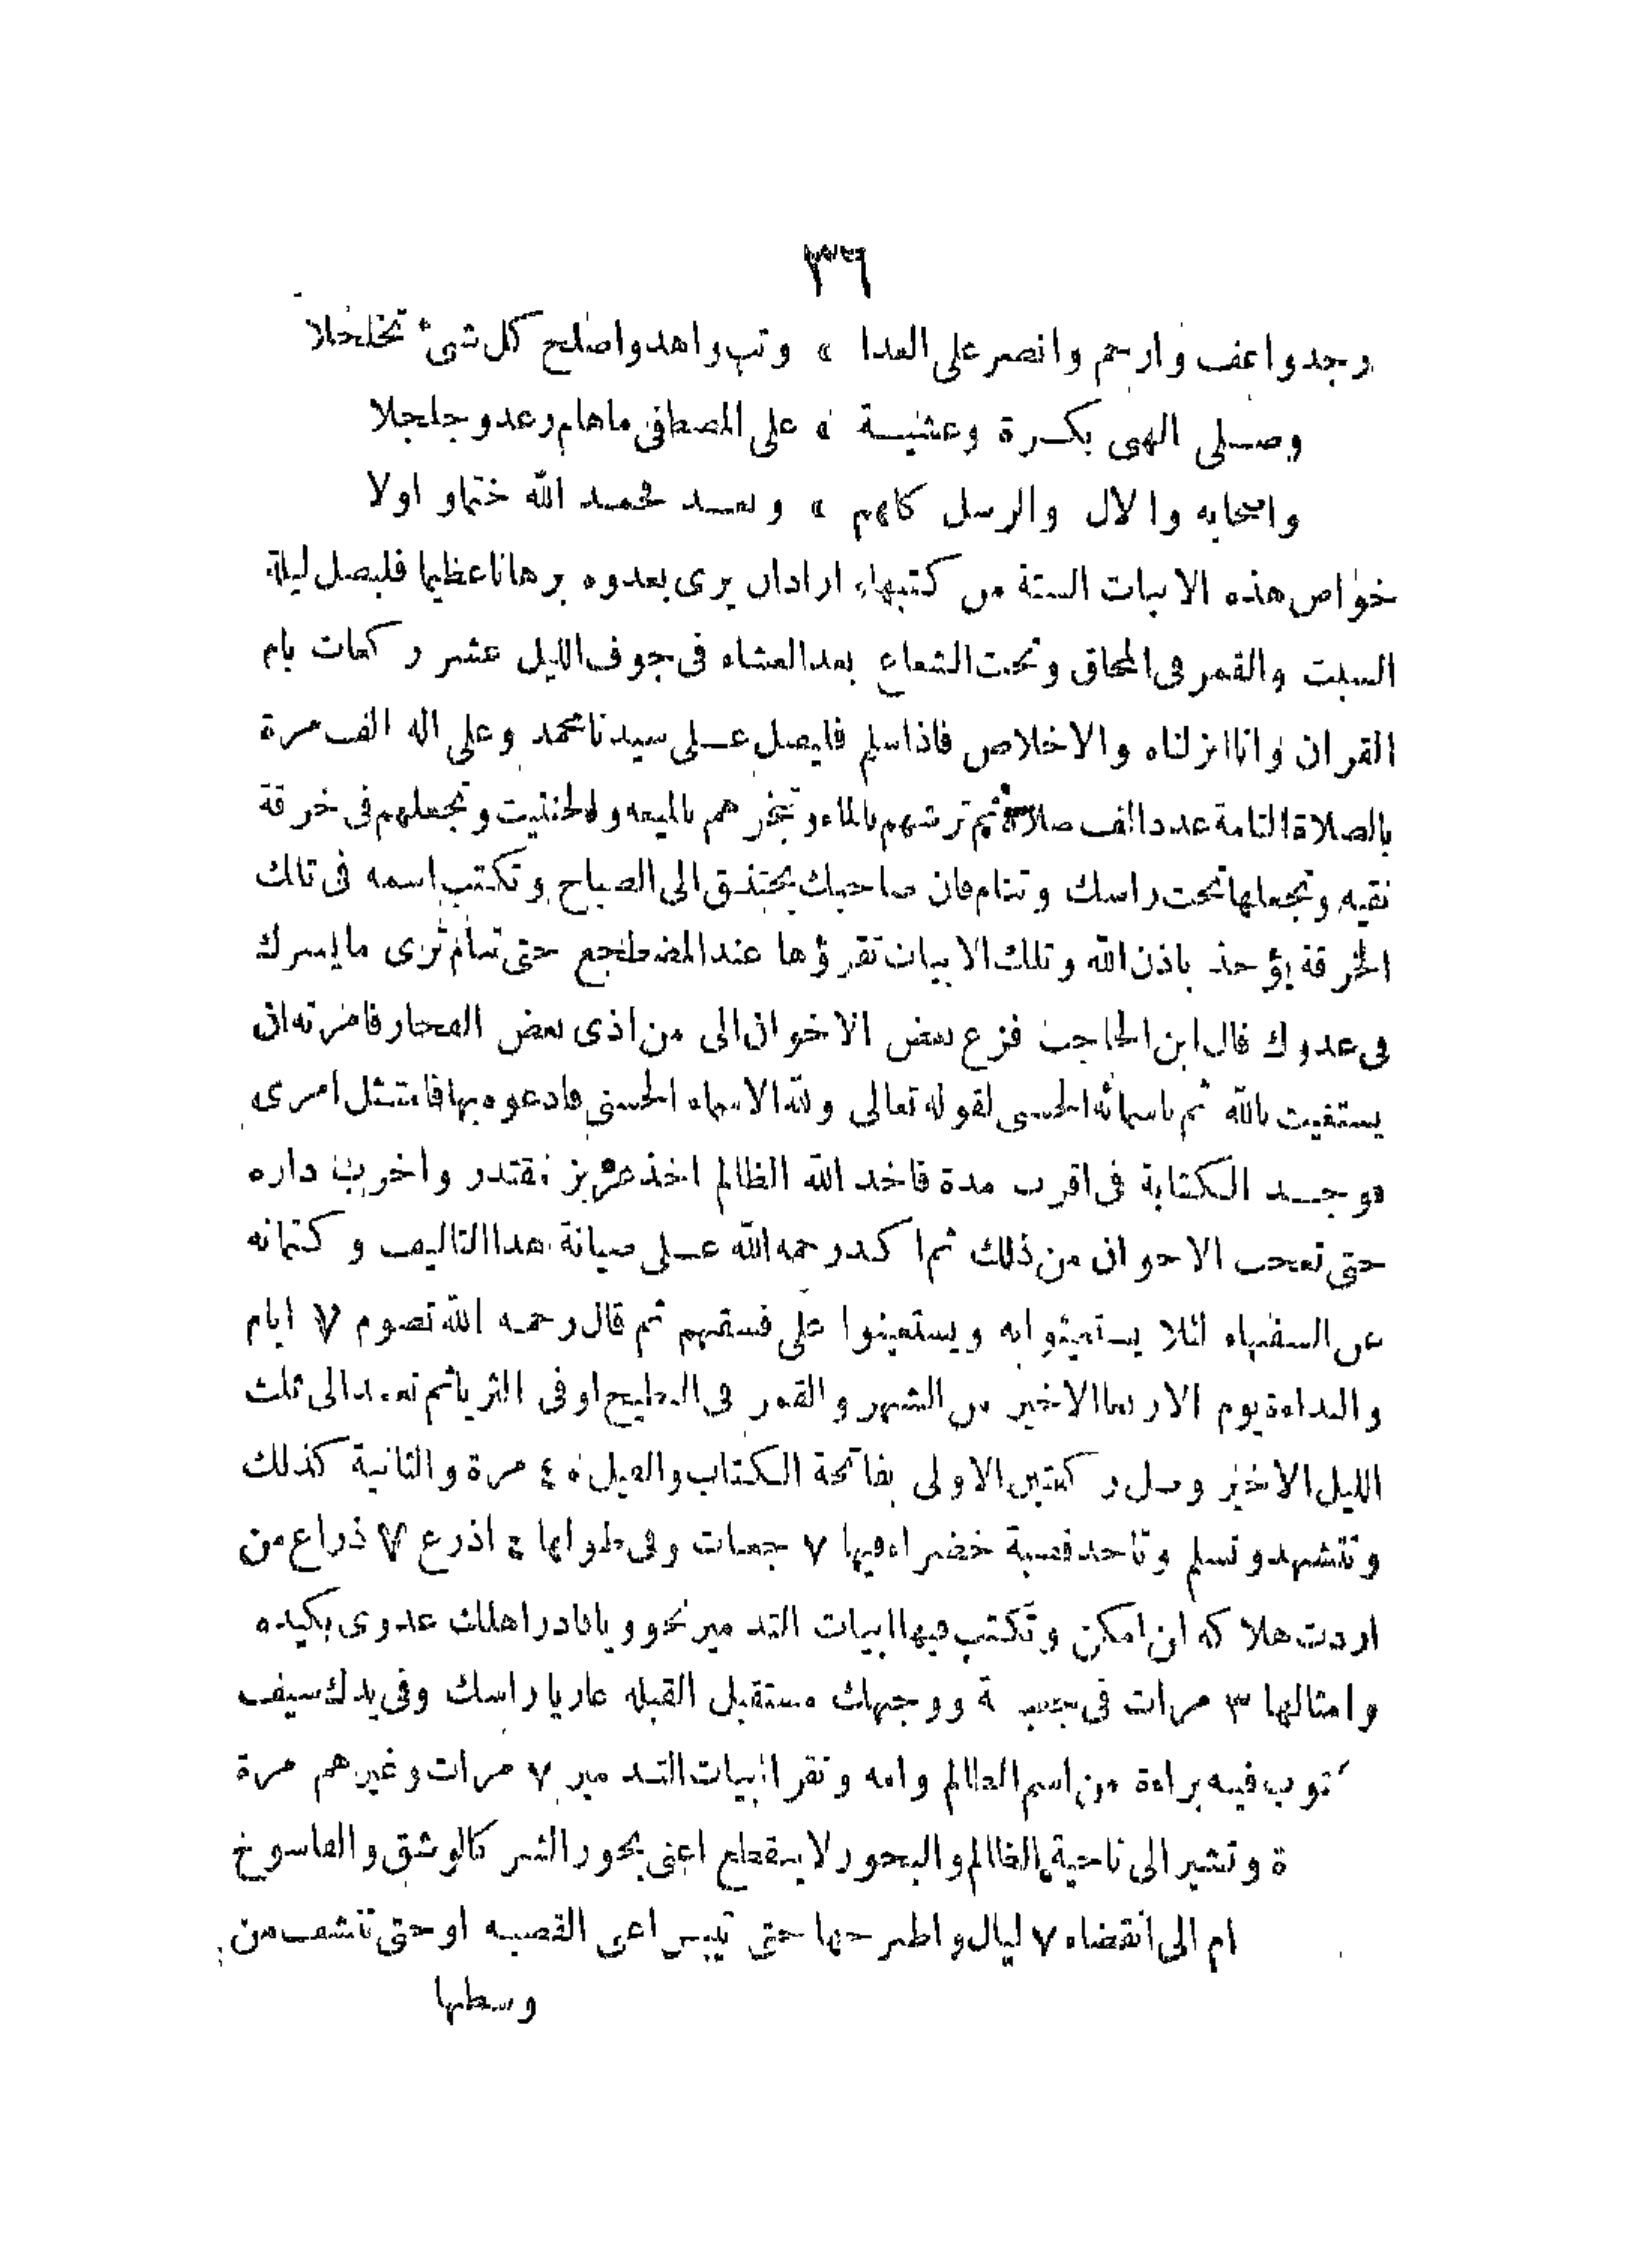 ٣٦
وجد واعف وارحم وانصر على العدا » وتب واهد واصلح كل شىء تخلخلا
وصلى الهى بكرة وعشية » على المصطفى ماهام رعد وجلجلا
واصحابه والال والرسل كلهم » وبعد بحمد الله ختما واولا
خواص هذه الابيات الستة من كتبها اراد ان يرى بعدوه برهانا عظيما فليصل ليلة
السبت والقمر فى المحاق وتحت الشعاع بعد العشاء فى جوف الليل عشر ركعات بام
القران وانا انزلناه والاخلاص فاذا سلم فليصل على سيدنا محمد وعلى اله الف مرة
بالصلاة التامة عدد الف صلاة ثم ترشهم بالماء وتبخرهم بالميعه والحلتيت وتجعلهم فى خرقة
نقيه وتجعلها تحت راسك وتنام فان صاحبك يختنق الى الصباح وتكتب اسمه فى تلك
الخرقة يؤخذ باذن الله وتلك الابيات تقرؤها عند المضطجع حتى تنام ترى ما يسرك
فى عدوك قال ابن الحاجب فزع بعض الاخوان الى من اذى بعض الفجار فامرته ان
يستغيث بالله ثم باسمائه الحسنى لقوله تعالى ولله الاسماء الحسنى فادعوه بها فامتثل امرى
فوجد الكتابة فى اقرب مدة فاخذ الله الظالم اخذ عزيز مقتدر واخربت داره
حتى تعجب الاخوان من ذلك ثم اكد رحمه الله على صيانة هذا التاليف وكتمانه
عن السفهاء لئلا يستعينوا به ويستعينوا على فسقهم ثم قال رحمه الله تصوم ٧ ايام
والبداءة يوم الاربعا الاخير من الشهر والقمر فى البطيح او فى الثريا ثم تعمد الى ثلث
الليل الاخير وصل ركعتين الاولى بفاتحة الكتاب والفيل ٤٥ مرة والثانية كذلك
وتتشهد وتسلم وتاخذ قصبة خضراء فيها ٧ جعبات وفى طولها ٤ اذرع ٧ ذراع من
اردت هلاكه ان امكن وتكتب فيها ابيات التدمير نحو ويا قادر اهلك عدوى بكيده
وامثالها ٣ مرات فى جعبة ووجهك مستقبل القبله عاريا راسك وفى يدك سيف
توب فيه براءة من اسم الظالم وامه وتقرا ابيات التدمير ٧ مرات وغيرهم مرة
ة وتشير الى ناحية الظالم والبخور لا ينقطع اعنى بخور الشر كالوشق والفاسوخ
ام الى انقضاء ٧ ليال واطرحها حتى تيبس اعنى القصبه او حتى تنشف من
وسطها